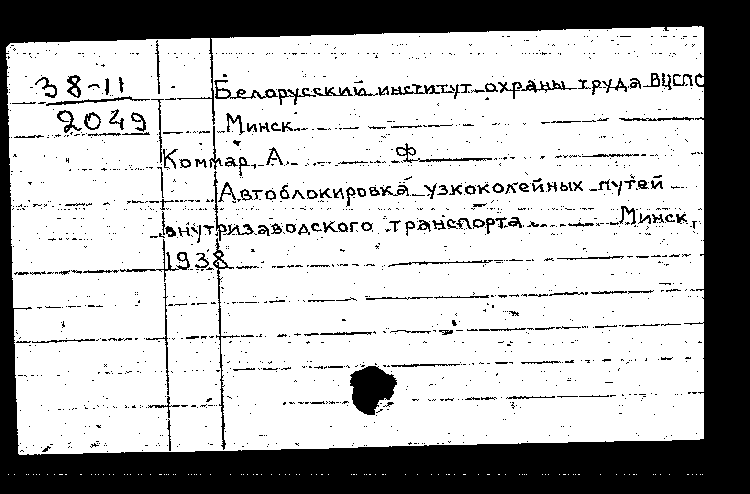 38-11
2049
Белорусский институт охраны труда ВЦСПС
Минск
Коммар, А. Ф
Автоблокировка узкоколейных путей
внутризаводского транспорта Минск,
1938